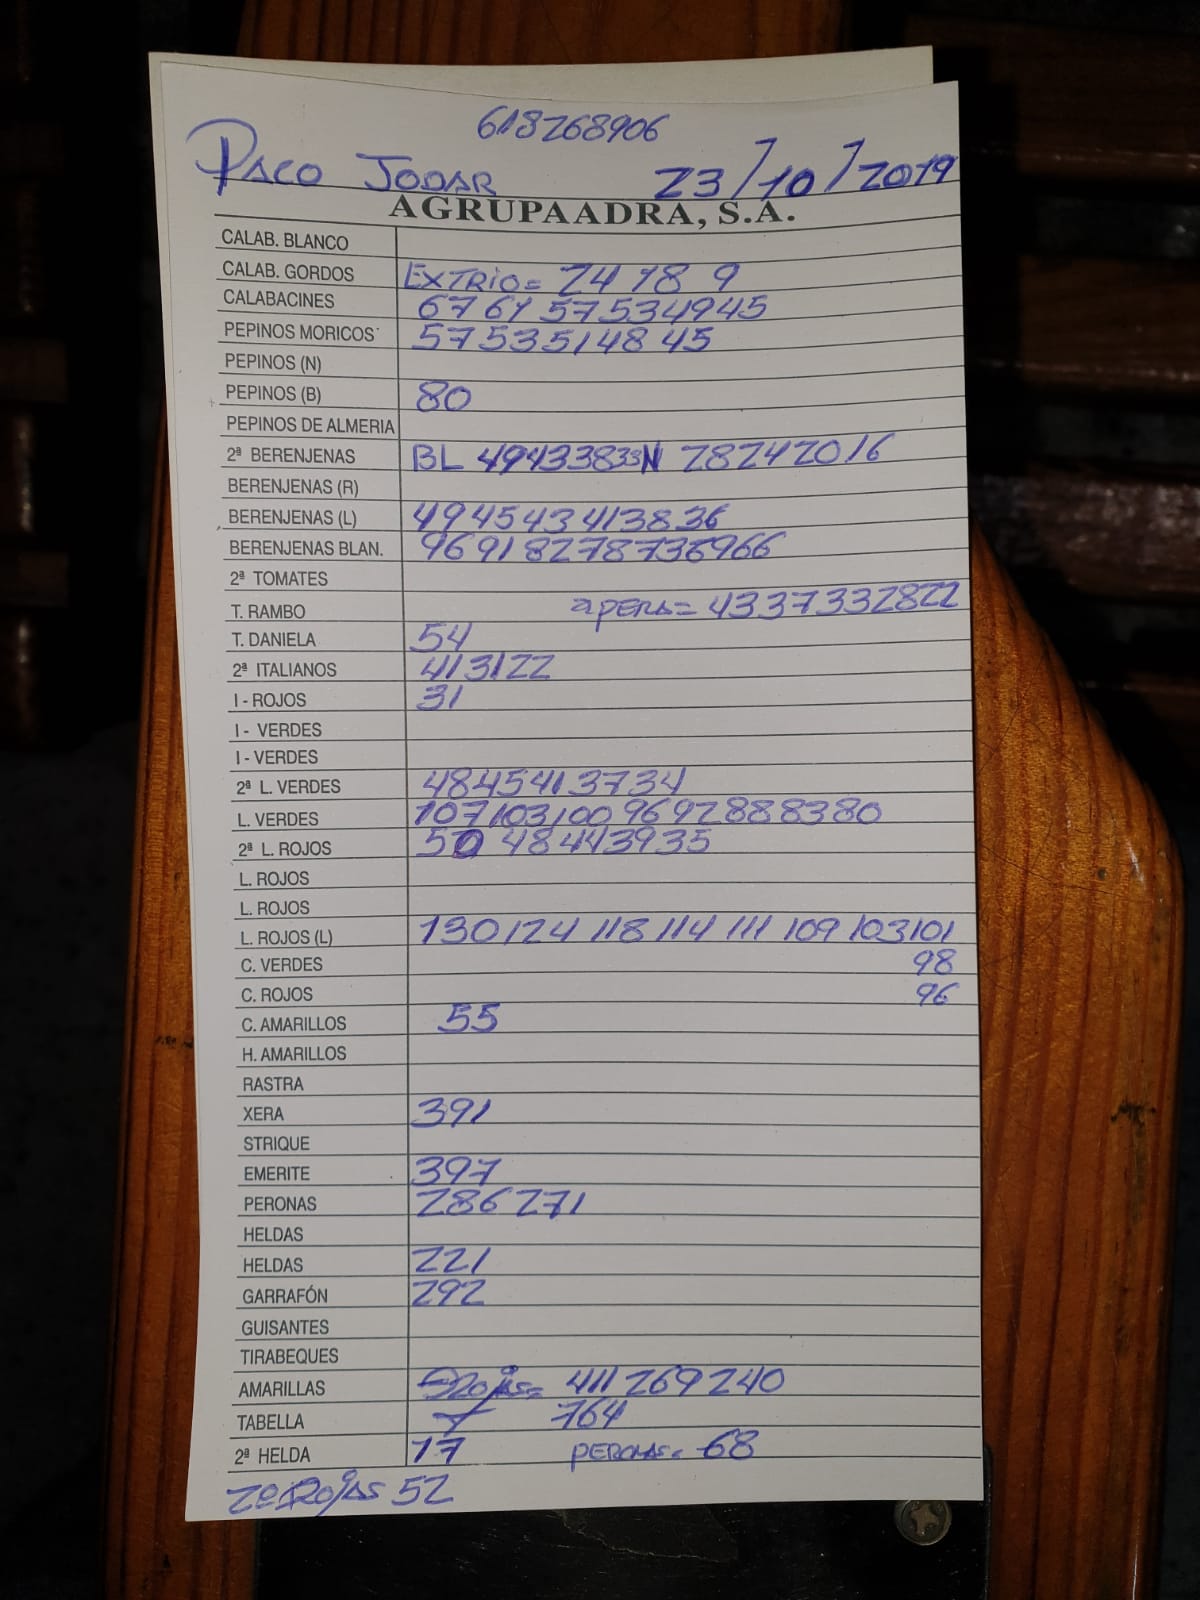 618268906
PACO JODAR 23/10/2019
AGRUPAADRA, S.A.
CALAB. BLANCO
CALAB. GORDOS EXTRIO= 24 18 9
CALABACINES 67 61 57 53 49 45
PEPINOS MORICOS 57 53 51 48 45
PEPINOS (N)
PEPINOS (B) 80
PEPINOS DE ALMERIA
2ª BERENJENAS BL 49 43 38 33 N 28 24 20 16
BERENJENAS (R)
BERENJENAS (L) 49 45 43 41 38 36
BERENJENAS BLAN. 96 91 82 78 73 69 66
2ª TOMATES
T. RAMBO PERA= 43 37 33 28 22
T. DANIELA 54
2ª ITALIANOS 41 31 22
I - ROJOS 31
I - VERDES
I - VERDES
2ª L. VERDES 48 45 41 37 34
L. VERDES 107 103 100 96 92 88 83 80
2ª L. ROJOS 50 48 44 39 35
L. ROJOS
L. ROJOS
L. ROJOS (L) 130 124 118 114 111 109 103 101
C. VERDES 98
C. ROJOS 96
C. AMARILLOS 55
H. AMARILLOS
RASTRA
XERA 391
STRIQUE
EMERITE 397
PERONAS 286 271
HELDAS
HELDAS 221
GARRAFÓN 292
GUISANTES
TIRABEQUES
AMARILLAS ROJAS= 411 269 240
TABELLA 764
2ª HELDA 17 PERONAS= 68
2º ROJAS 52